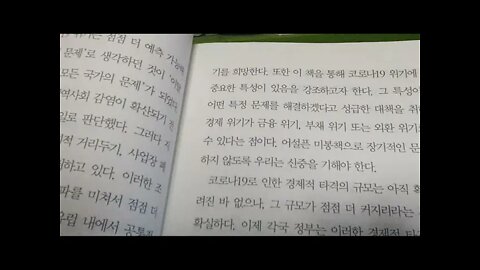 위기는 점점 더 예측 가능해
문제'로 생각하던 것이 '어떻
모든 국가의 문제'가 되었다.
역사회 감염이 확산되기 전
일로 판단했다. 그러다 지
적 거리두기, 사업장 폐
하고 있다. 이러한 조
파를 미쳐서 점점 더
유럽 내에서 공통
기를 희망한다. 또한 이 책을 통해 코로나19 위기에
중요한 특성이 있음을 강조하고자 한다. 그 특성이
어떤 특정 문제를 해결하겠다고 성급한 대책을 취
경제 위기가 금융 위기, 부채 위기 또는 외환 위기
수 있다는 점이다. 어설픈 미봉책으로 장기적인 문
하지 않도록 우리는 신중을 기해야 한다.
코로나19로 인한 경제적 타격의 규모는 아직 확
려진 바 없으나, 그 규모가 점점 더 커지리라는
확실하다. 이제 각국 정부는 이러한 경제적 타